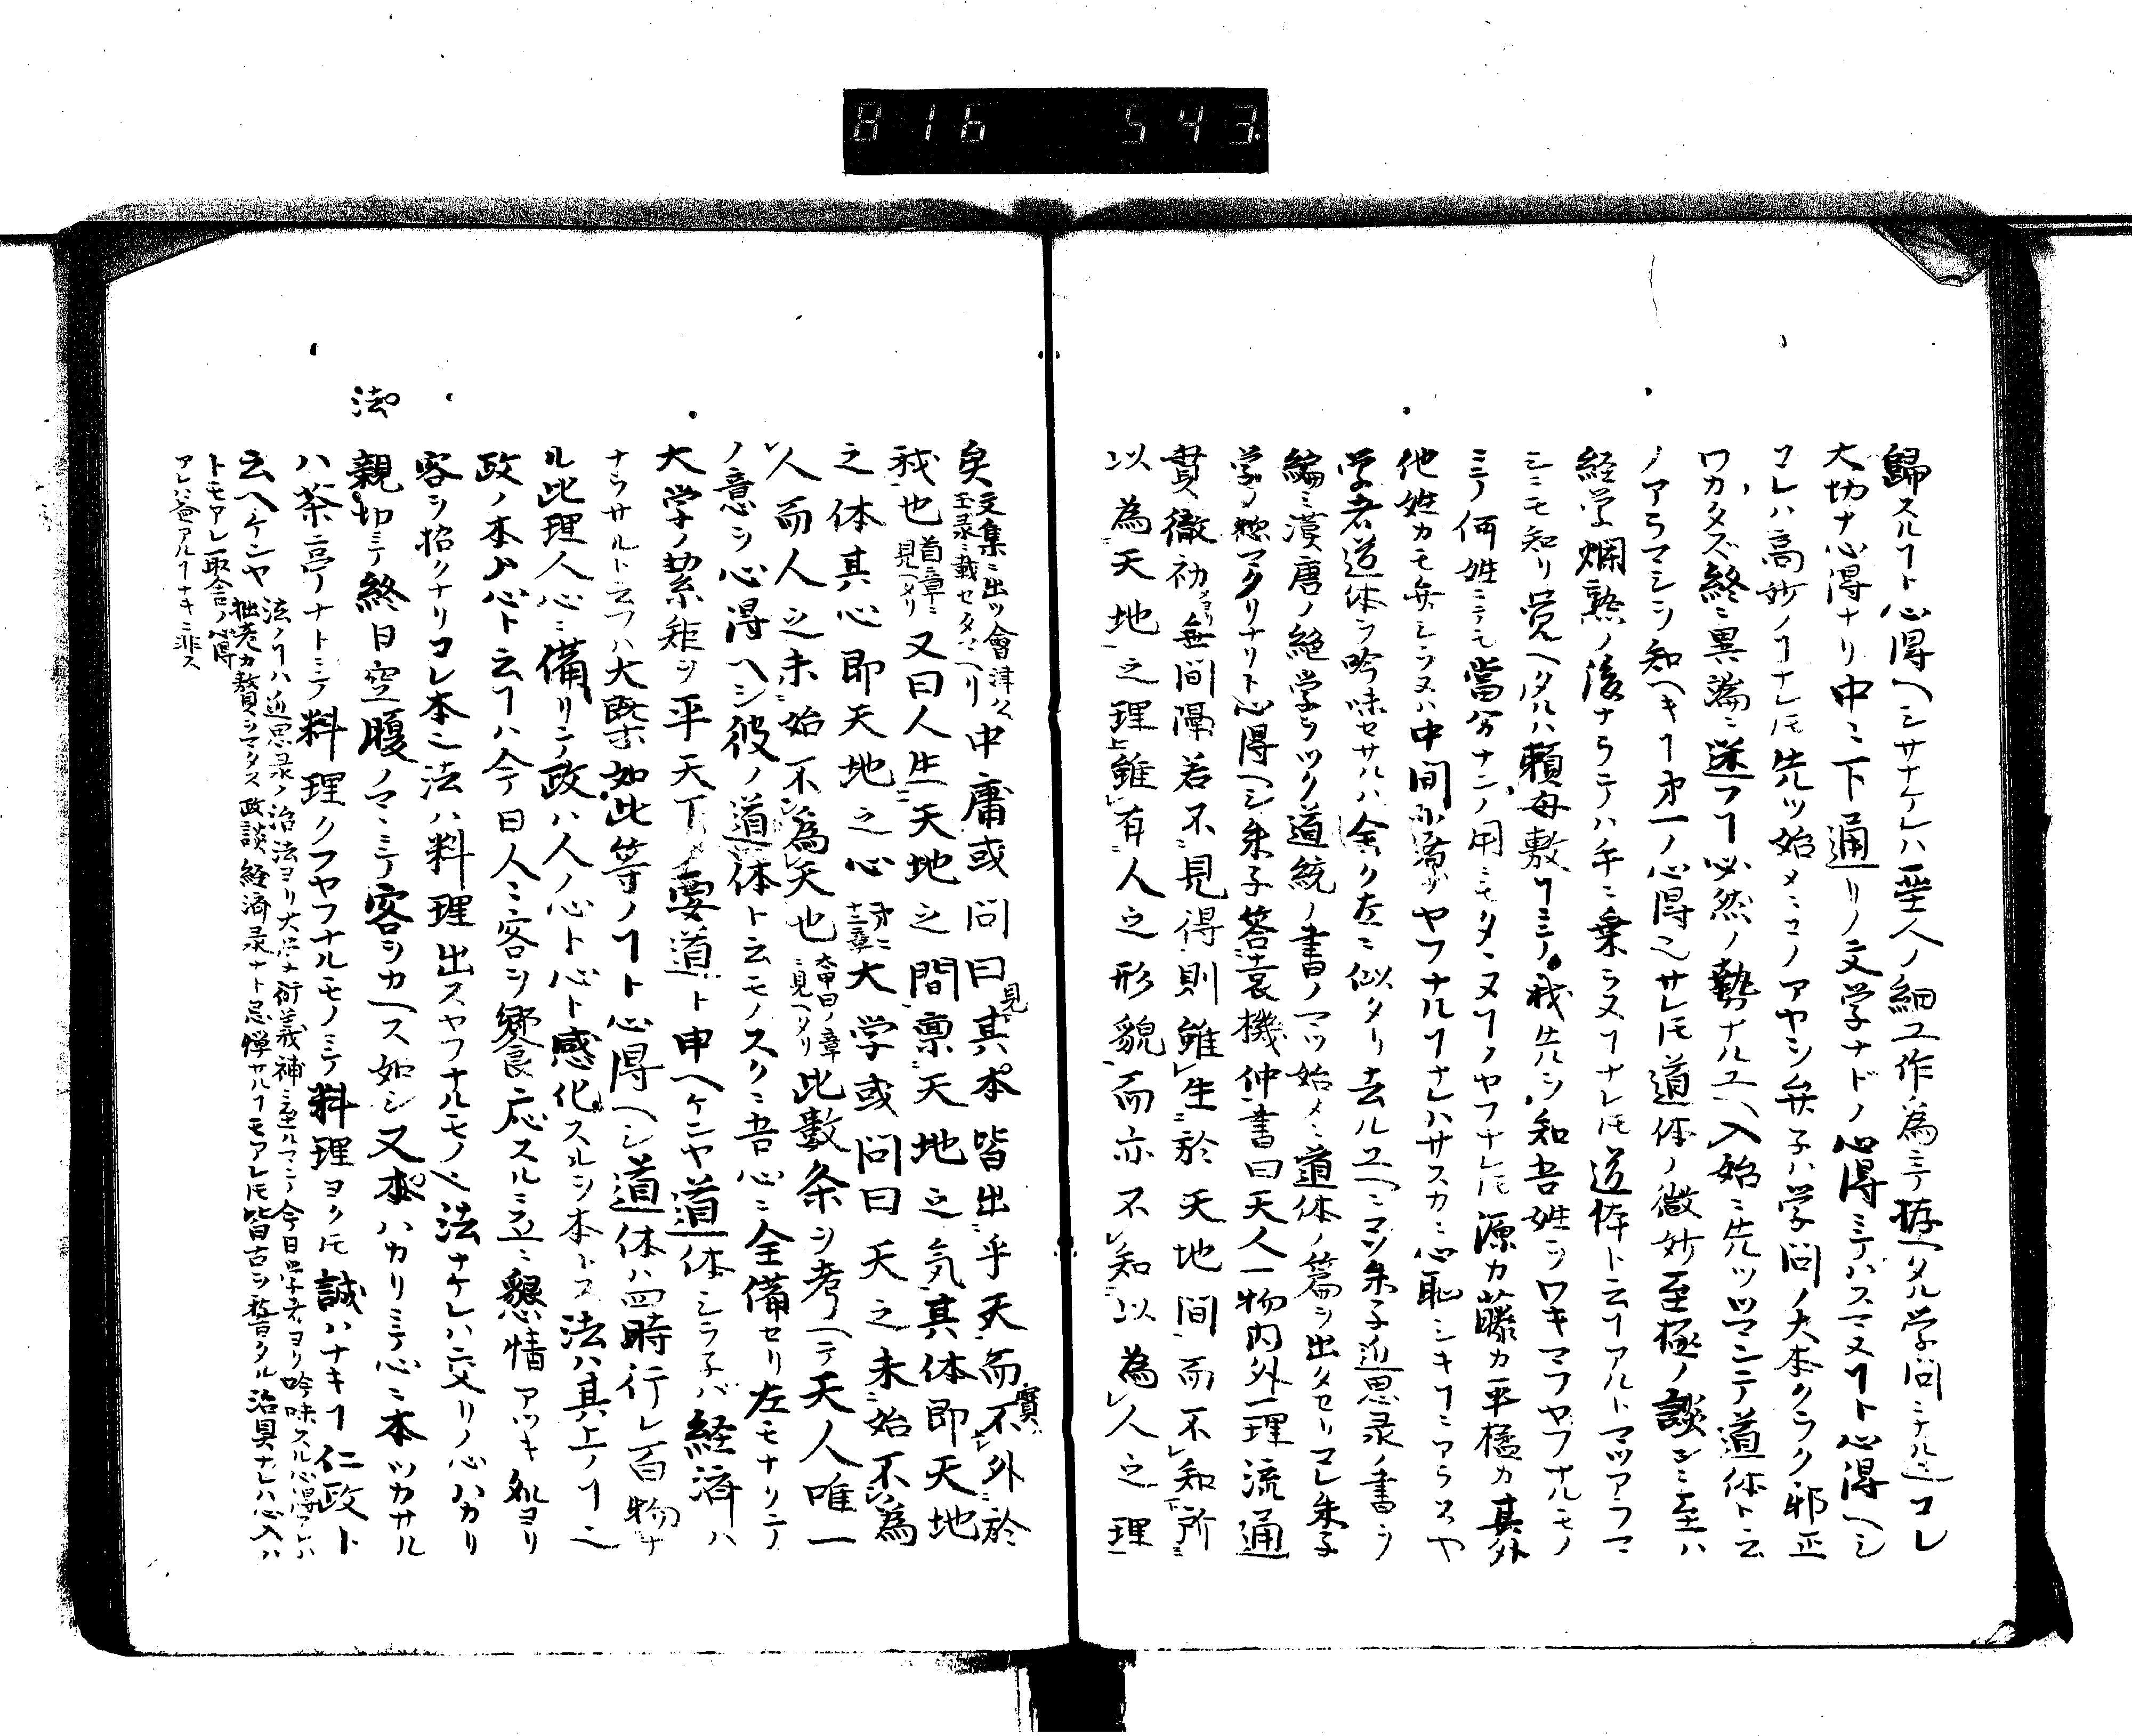 816 543
歸スルヿト心得ヘシサナケレハ聖人ノ細工作為ニテ拵ヘタル学問ニナル也コレ
大切ナ心得ナリ中ニ下通リノ文学ナドノ心得ニテハスマヌヿト心得ヘシ
コレハ高妙ノヿナレ𪜈先ツ始メニコノアヤシ弁子ハ学問ノ大本クラク邪正
ワカタズ終ニ異端ニ迷フヿ必然ノ勢ナルユヘ入始ニ先ツツマンテ道体ト云
ノアラマシシ知ヘキヿ第一ノ心得也サレ𪜈道体ノ微妙至極ノ談シニ至ハ
経学爛熟ノ後ナラテハ手ニ乗ラヌヿナレ𪜈道体ト云ヿアルトマツアラマ
シニモ知リ覚ヘタルハ頼母敷ヿニテ我先ヲ知吾姓ヲワキマフヤフナルモノ
ニテ何姓ニテモ當分ナンノ用ニモタヽヌヿノヤフナレ𪜈源カ藤カ平橘カ其外
他姓カモ弁シラヌハ中間小者ヤフナルヿナレハサスカニ心恥シキヿニアラスヤ
学者道体ヲ吟味セサルハ全ク左ニ似タリ去ルユヘニマツ朱子近思录ノ書ヲ
編ミ漢唐ノ絶学ヲツク道統ノ書ノマツ始メニ道体ノ篇ヲ出タセリコレ朱子
学ノ惣マクリナリト心得ヘシ朱子答袁機仲書曰天人一物内外一理流通
貫徹初ヨリ無間隔若不見得則雖生於天地間而不知所
以為天地之理雖有人之形貌而亦不知以為人之理
矣文集ニ出ツ會津公玉录ニ載セタマヘリ中庸或問曰見其本皆出乎天而實不外於
我也首章ニ見ヘタリ又曰人生天地之間禀天地之気其体即天地
之体其心即天地之心第二十二章大学或問曰天之未始不為
人而人之未始不為天也大甲曰ノ章ニ見ヘタリ此數条ヲ考ヘテ天人唯一
ノ意ヲ心得ヘシ彼ノ道体ト云モノスクニ吾心ニ全備セリ左モナリテ
大学ナノ絜矩ヲ平天下ノ要道ト申ヘケンヤ道体シラ子バ経済ハ
ナラサルト云フハ大槩如此等ノヿト心得ヘシ道体ハ四時行レ百物ナ
ル此理人心ニ備リテ政ハ人ノ心ト心ト感化スルヲ本トス法ハ其上ノヿ也
政ノ本ハ心ト云ヿハ今日人ニ客ヲ饗応スルニ立ニ懇情アツキ処ヨリ
客ヲ招クナリコレ本也法ハ料理出スヤフナルモノ也法ナケレハ交リノ心ハカリ
親切ニテ終日空腹ノマヽニテ客ヲカヘス如シ又本ハカリニテ心ニ本ツカサル
法
ハ茶亭ナトニテ料理クフヤフナルモノニテ料理ヨク𪜈誠ハナキヿ仁政ト
云ヘケンヤ法ノヿハ近思录ノ治法ヨリ大学ナ衍義補ニ至ルマテ今日学者ヨリ吟味スル心得アレハ
拙老カ贅ヲマタス政談経済录ナト忌憚ナルヿモアレ𪜈皆古ヲ稽タル治具ナレハ心入ハ
トモアレ取舎ノ心得
アレハ益アルヿナキニ非ス